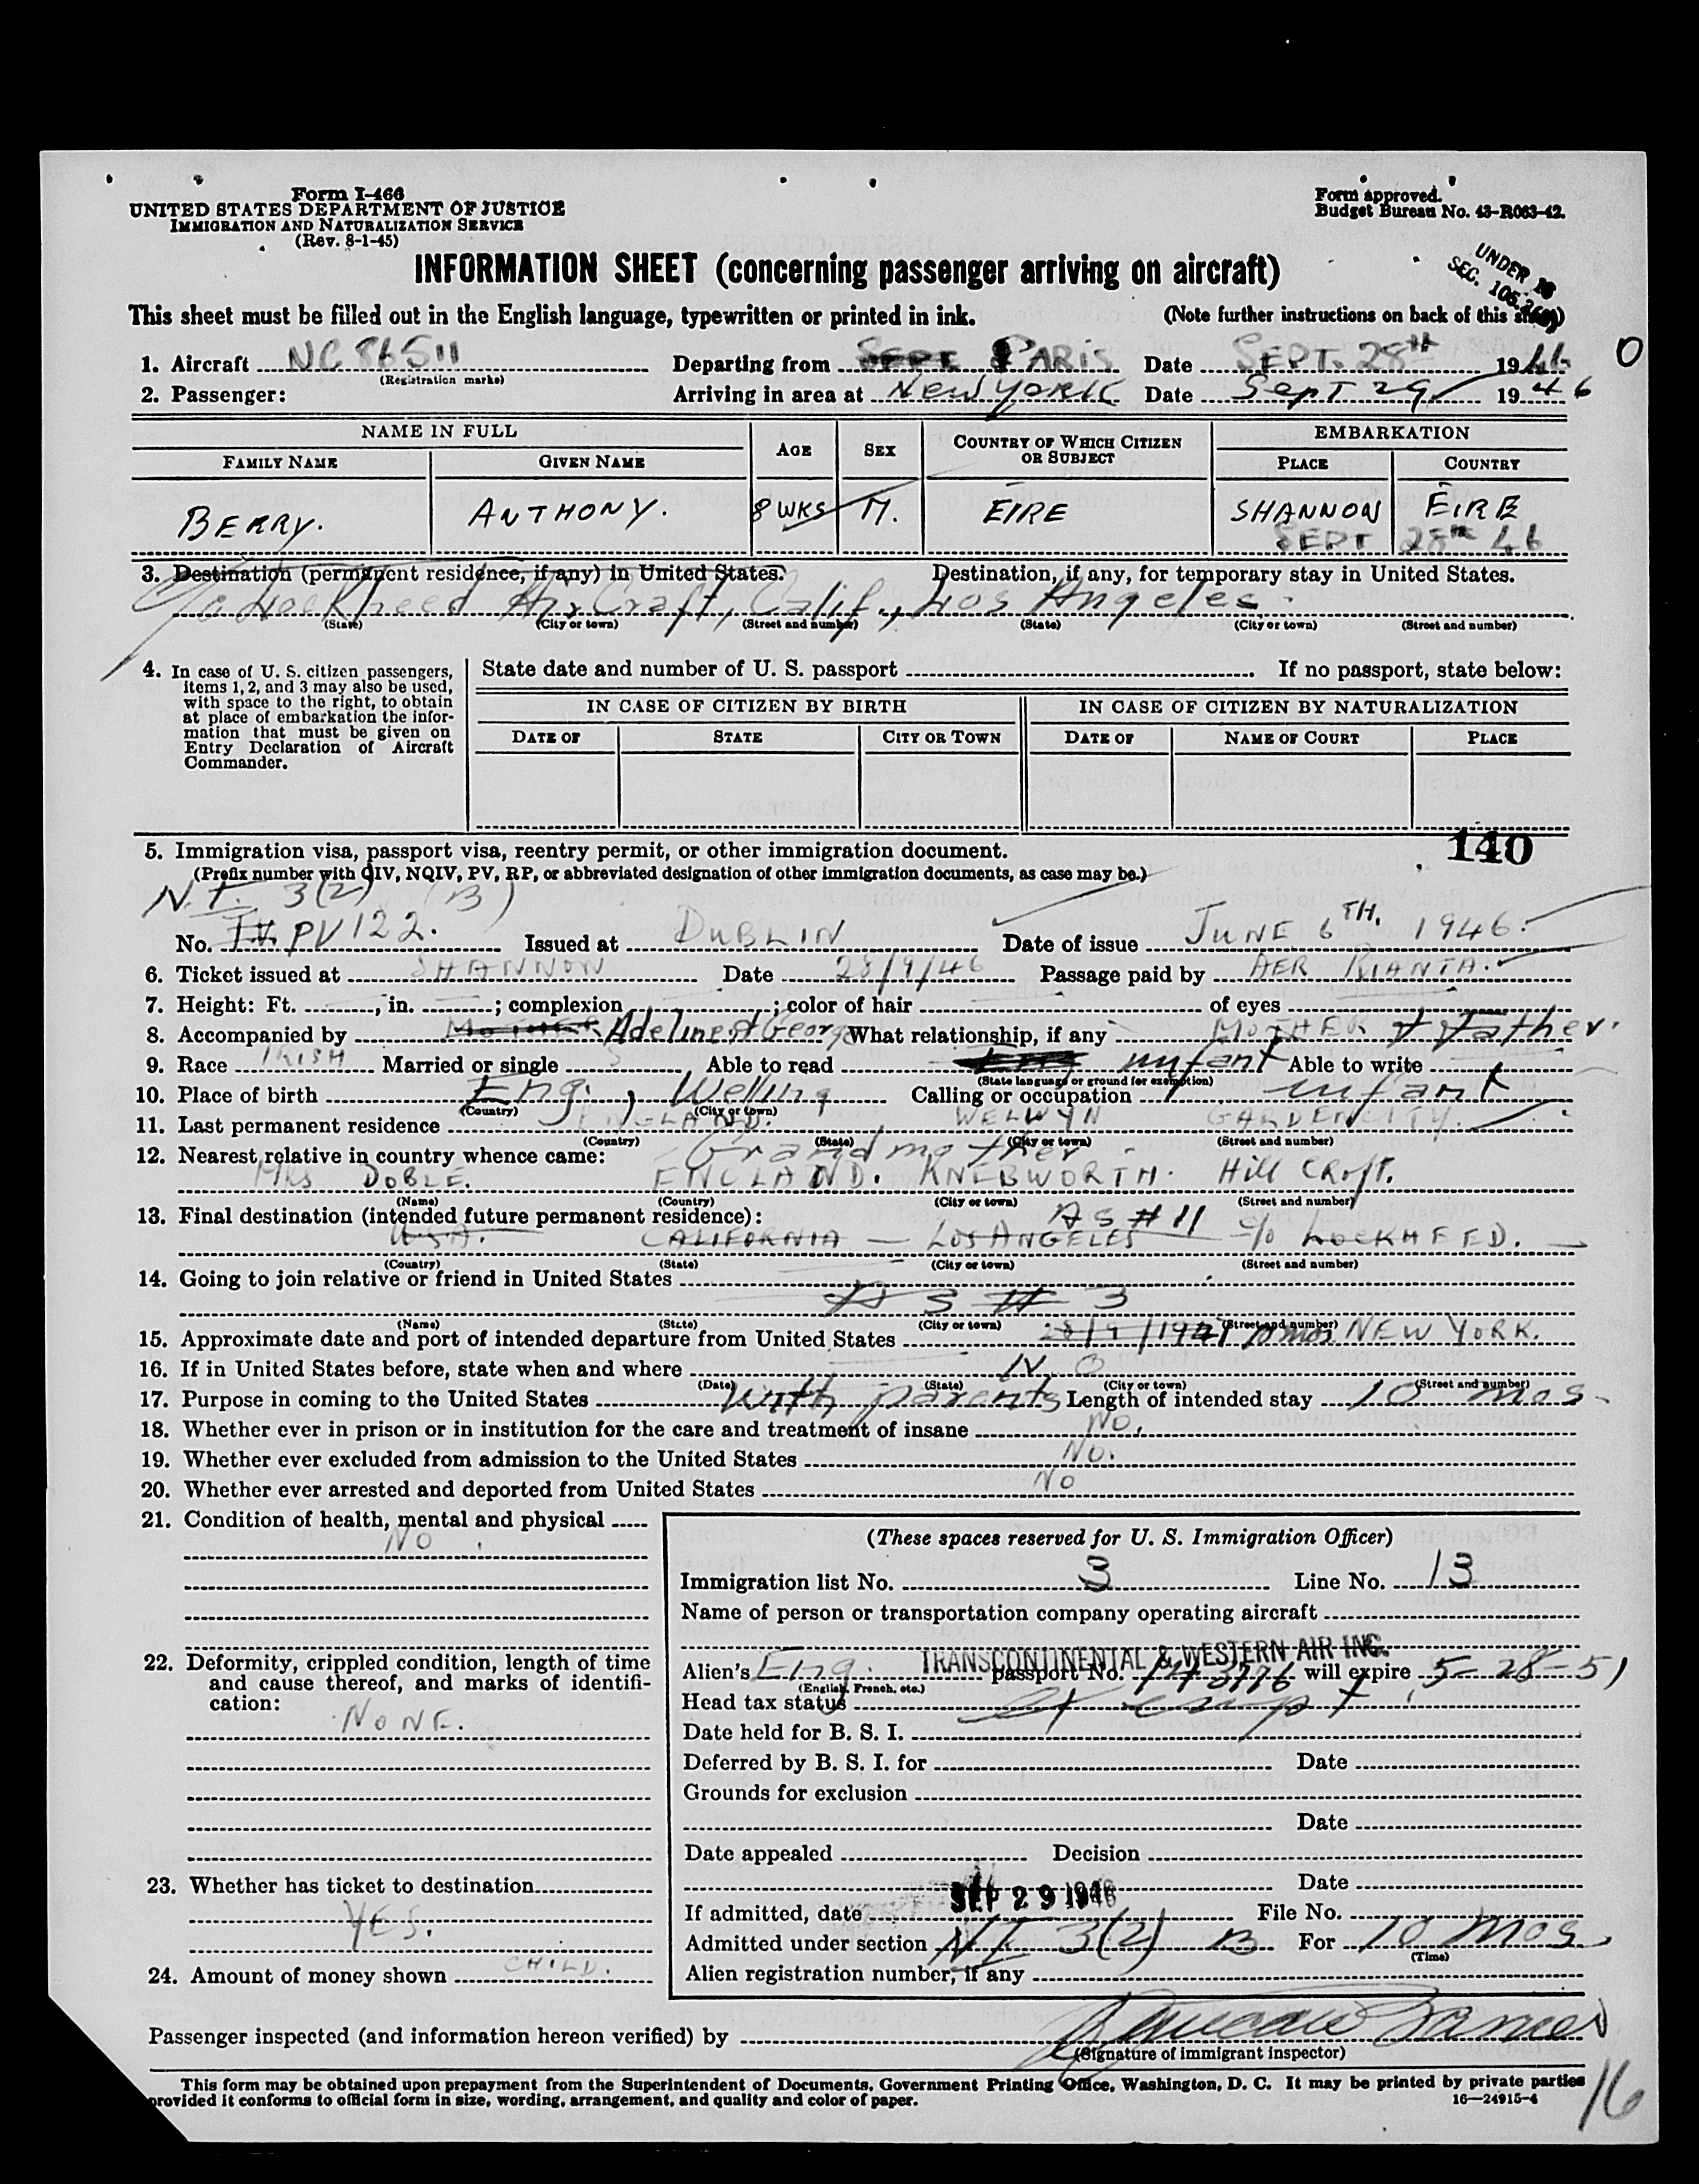 Form I-466
UNITED STATES DEPARTMENT OF JUSTICE
IMMIGRATION AND NATURALIZATION SERVICE
(Rev. 8-1-45)
Form approved.
Budget Bureau No. 43-R063-42.
INFORMATION SHEET (concerning passenger arriving on aircraft)
UNDER 16
SEC. 105.3
This sheet must be filled out in the English language, typewritten or printed in ink. (Note further instructions on back of this sheet)
1. Aircraft NC 86511 Departing from PARIS Date SEPT. 28TH 1946 0
(Registration marks)
2. Passenger: Arriving in area at New York Date Sept 29 1946
NAME IN FULL
FAMILY NAME GIVEN NAME AGE SEX COUNTRY OF WHICH CITIZEN OR SUBJECT EMBARKATION PLACE COUNTRY
BERRY. ANTHONY. 8 WKS M. EIRE SHANNON EIRE
SEPT 28TH 46
3. Destination (permanent residence, if any) in United States. Destination, if any, for temporary stay in United States.
c/o Lockheed Air Craft, Calif., Los Angeles.
(State) (City or town) (Street and number) (State) (City or town) (Street and number)
4. In case of U. S. citizen passengers, items 1, 2, and 3 may also be used, with space to the right, to obtain at place of embarkation the information that must be given on Entry Declaration of Aircraft Commander.
State date and number of U. S. passport If no passport, state below:
IN CASE OF CITIZEN BY BIRTH IN CASE OF CITIZEN BY NATURALIZATION
DATE OF STATE CITY OR TOWN DATE OF NAME OF COURT PLACE
140
5. Immigration visa, passport visa, reentry permit, or other immigration document.
(Prefix number with QIV, NQIV, PV, RP, or abbreviated designation of other immigration documents, as case may be.)
N.I. 3(2) (B)
No. PV 122. Issued at DUBLIN Date of issue JUNE 6TH. 1946.
6. Ticket issued at SHANNON Date 28/9/46 Passage paid by AER RIANTA.
7. Height: Ft. , in. ; complexion ; color of hair of eyes
8. Accompanied by Adeline & George What relationship, if any MOTHER & Father.
9. Race IRISH Married or single S Able to read infant Able to write
(State language or ground for exemption)
10. Place of birth Eng., Welling Calling or occupation infant
(Country) (City or town)
11. Last permanent residence ENGLAND. WELWYN GARDEN CITY.
(Country) (State) (City or town) (Street and number)
12. Nearest relative in country whence came: Grandmother
MRS DOBLE. ENGLAND. KNEBWORTH. Hill CRoft.
(Name) (Country) (City or town) (Street and number)
13. Final destination (intended future permanent residence): AS # 11
U.S.A. CALIFORNIA — LOS ANGELES c/o LOCKHEED.
(Country) (State) (City or town) (Street and number)
14. Going to join relative or friend in United States
AS # 3
(Name) (State) (City or town) (Street and number)
15. Approximate date and port of intended departure from United States 28/9/1947 10 mos NEW YORK.
16. If in United States before, state when and where NO
(Date) (State) (City or town) (Street and number)
17. Purpose in coming to the United States With parents Length of intended stay 10 mos.
18. Whether ever in prison or in institution for the care and treatment of insane NO.
19. Whether ever excluded from admission to the United States NO.
20. Whether ever arrested and deported from United States NO
21. Condition of health, mental and physical
NO.
(These spaces reserved for U. S. Immigration Officer)
Immigration list No. 3 Line No. 13
Name of person or transportation company operating aircraft
TRANSCONTINENTAL & WESTERN AIR INC.
22. Deformity, crippled condition, length of time and cause thereof, and marks of identification:
NONE.
Alien's Eng. passport No. will expire 5-28-51
(English, French, etc.)
Head tax status exempt
Date held for B. S. I.
Deferred by B. S. I. for Date
Grounds for exclusion
Date
Date appealed Decision
23. Whether has ticket to destination
YES.
Date
If admitted, date SEP 29 1946 File No.
Admitted under section NI 3(2) B For 10 mos
(Time)
24. Amount of money shown CHILD.
Alien registration number, if any
Passenger inspected (and information hereon verified) by
(Signature of immigrant inspector)
This form may be obtained upon prepayment from the Superintendent of Documents, Government Printing Office, Washington, D. C. It may be printed by private parties
provided it conforms to official form in size, wording, arrangement, and quality and color of paper. 16—24915-4
16